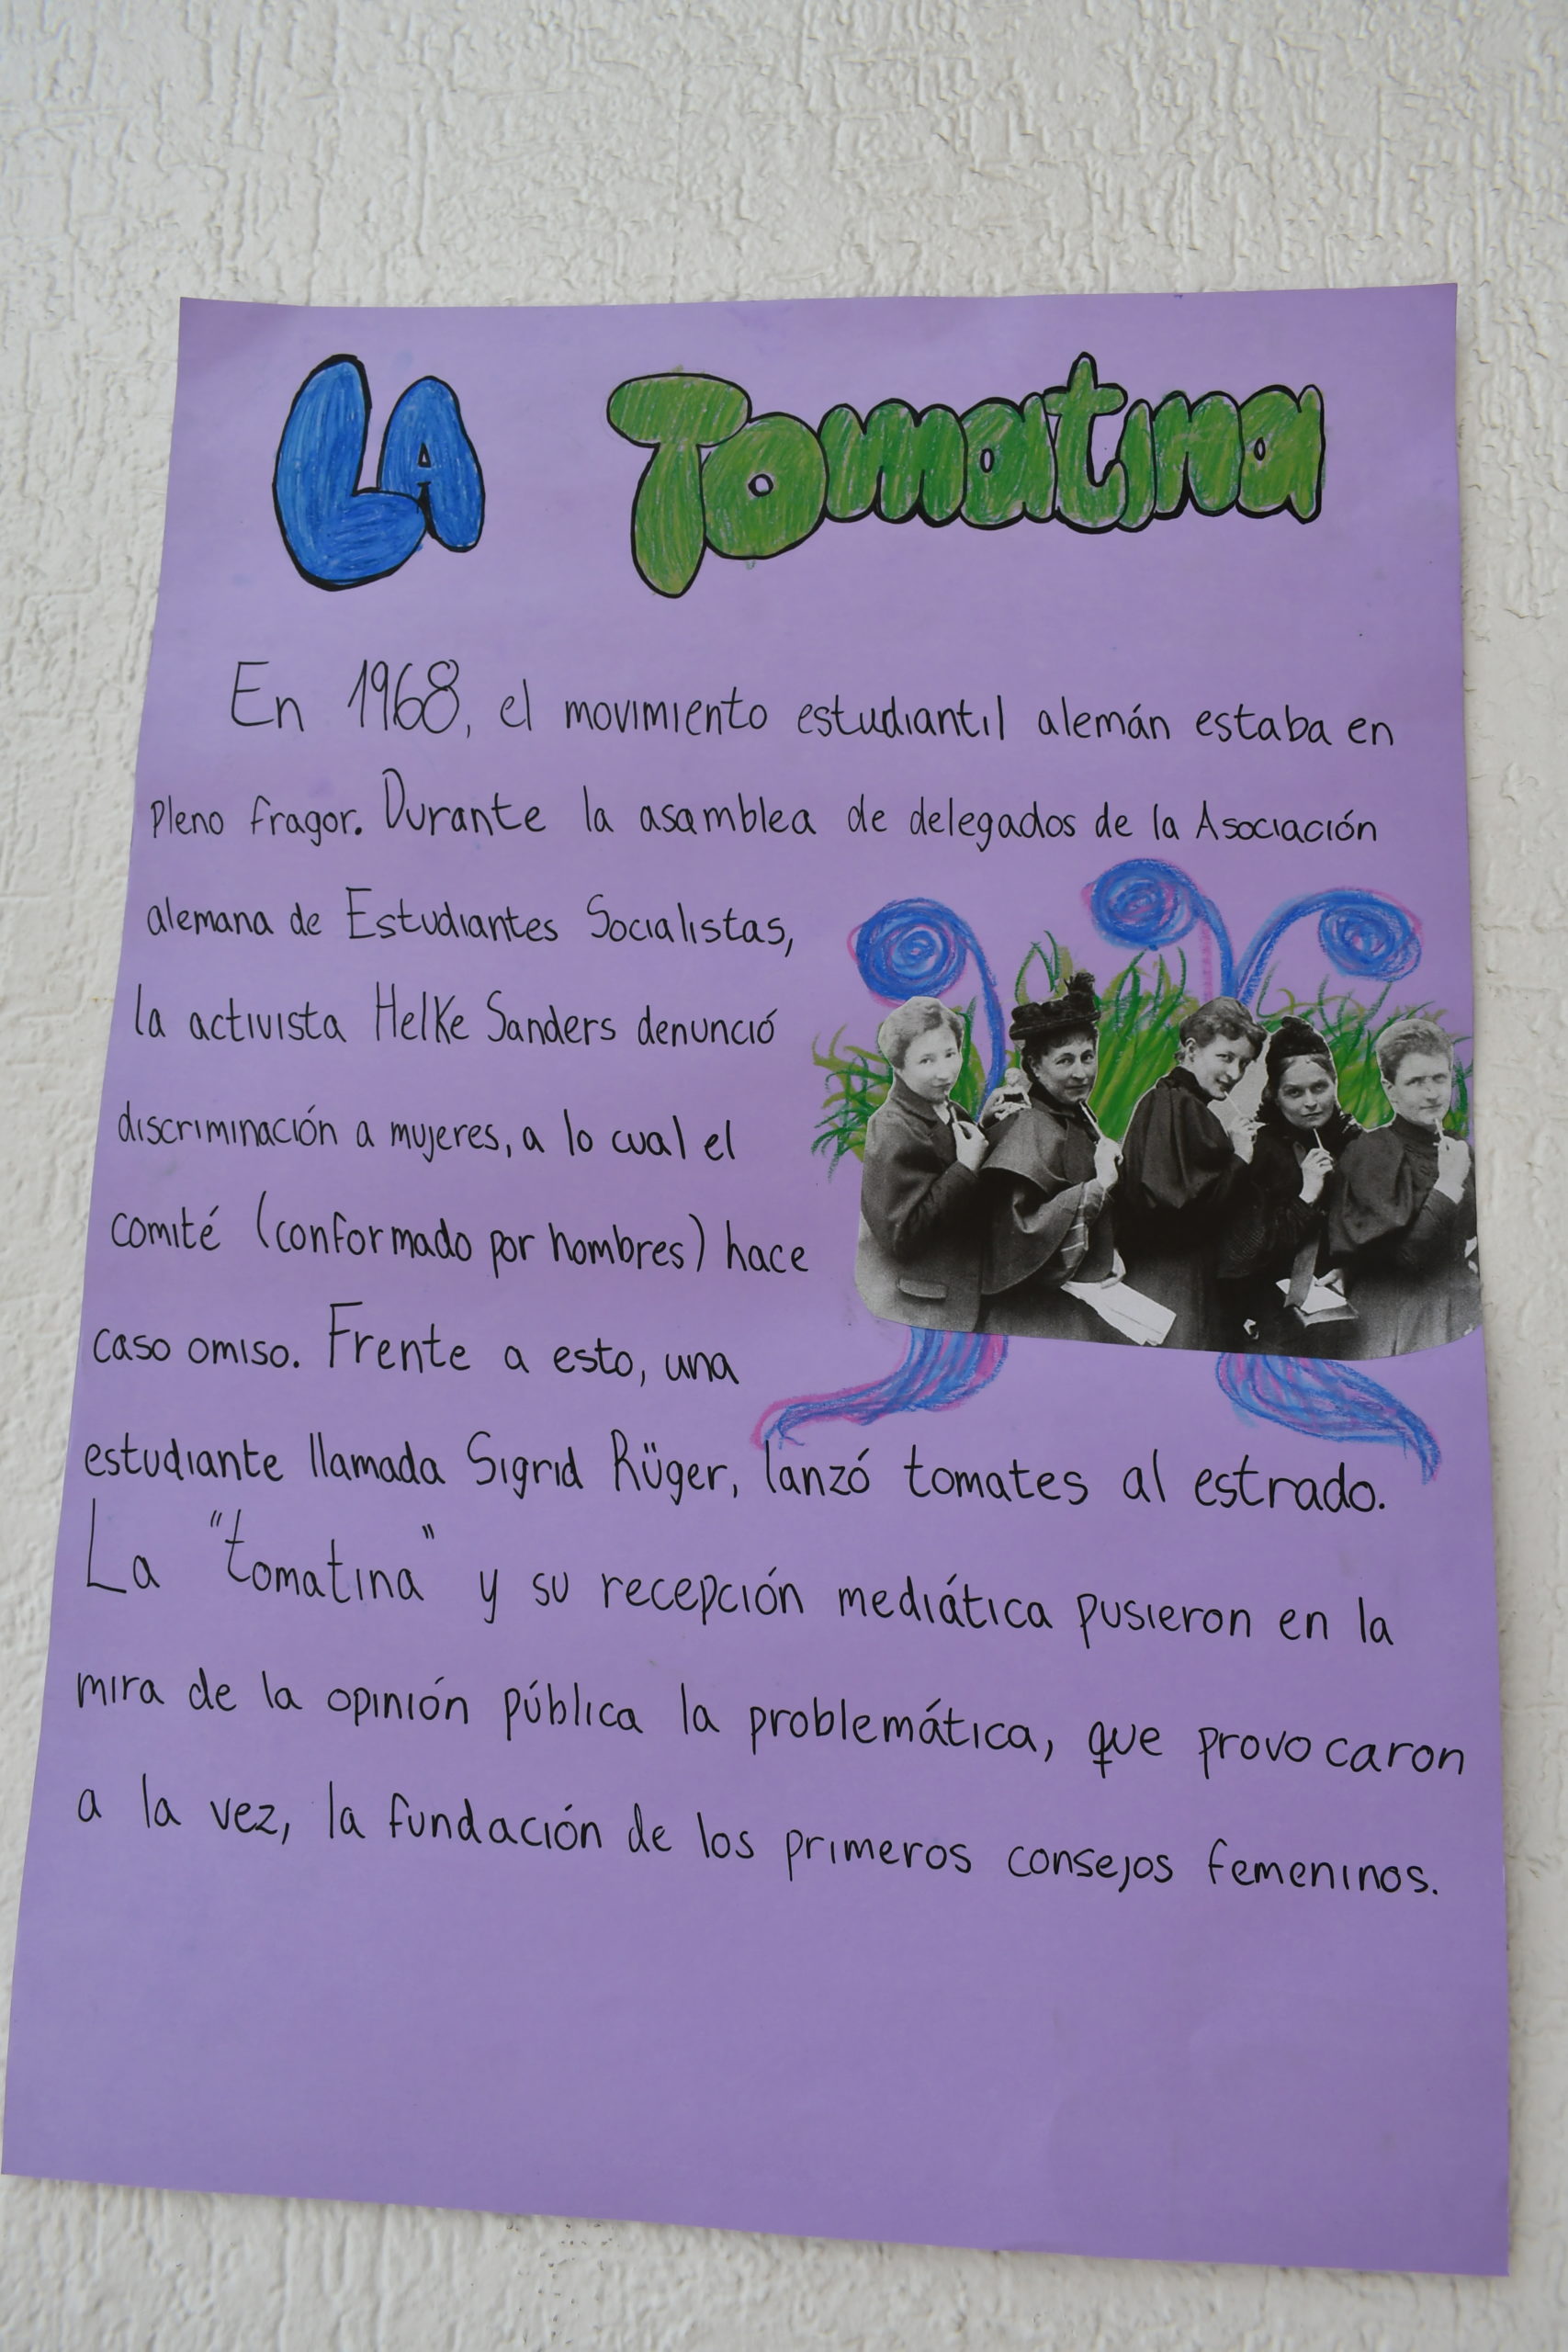 LA Tomatina
En 1968, el movimiento estudiantil alemán estaba en
pleno fragor. Durante la asamblea de delegados de la Asociación
alemana de Estudiantes Socialistas,
la activista Helke Sanders denunció
discriminación a mujeres, a lo cual el
comité (conformado por hombres) hace
caso omiso. Frente a esto, una
estudiante llamada Sigrid Rüger, lanzó tomates al estrado.
La "tomatina" y su recepción mediática pusieron en la
mira de la opinión pública la problemática, que provocaron
a la vez, la fundación de los primeros consejos femeninos.